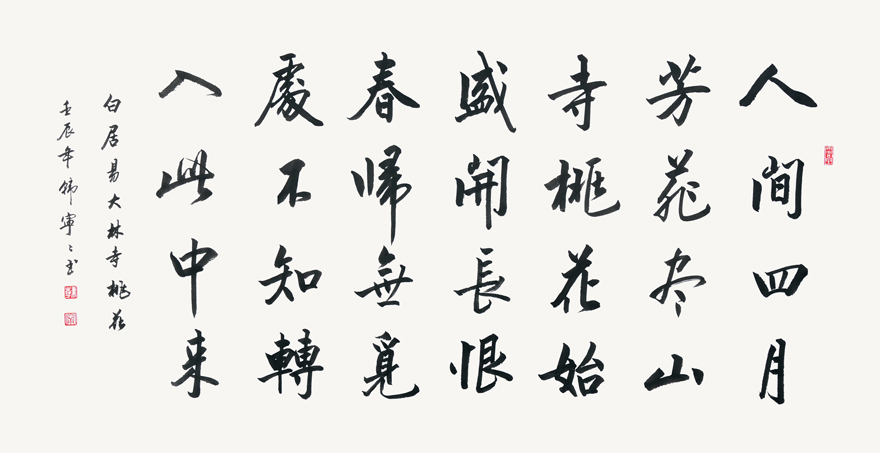 人間四月
芳菲尽山
寺桃花始
盛開長恨
春帰無覓
處不知轉
入此中来
白居易大林寺桃花
壬辰年韩寧〻书